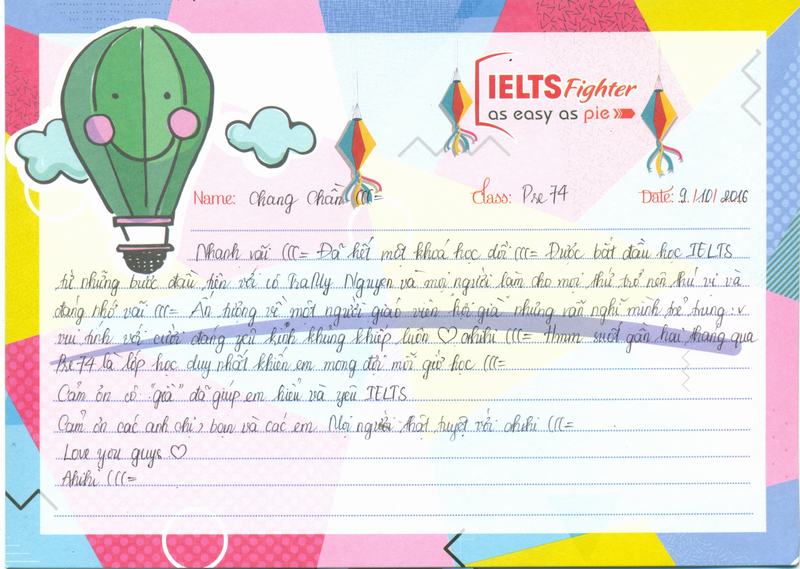 IELTS Fighter
as easy as pie
Name: Chang Chần (((= Class: Pre 74 Date: 9./10/ 2016
Nhanh vãi (((= Đã hết một khoá học dồi (((= Được bắt đầu học IELTS
từ những bước đầu tiên với cô TraMy Nguyen và mọi người làm cho mọi thứ trở nên thú vị và
đáng nhớ vãi (((= Ấn tượng về một người giáo viên hơi già nhưng vẫn nghĩ mình trẻ trung :v
vui tính với cười đáng yêu kinh khủng khiếp luôn ♡ ahihi (((= Hmm suốt gần hai tháng qua
Pre 74 là lớp học duy nhất khiến em mong đợi mỗi giờ học (((=
Cảm ơn cô "già" đã giúp em hiểu và yêu IELTS
Cảm ơn các anh chị, bạn và các em Mọi người thật tuyệt vời ahihi (((=
Love you guys ♡
Ahihi (((=